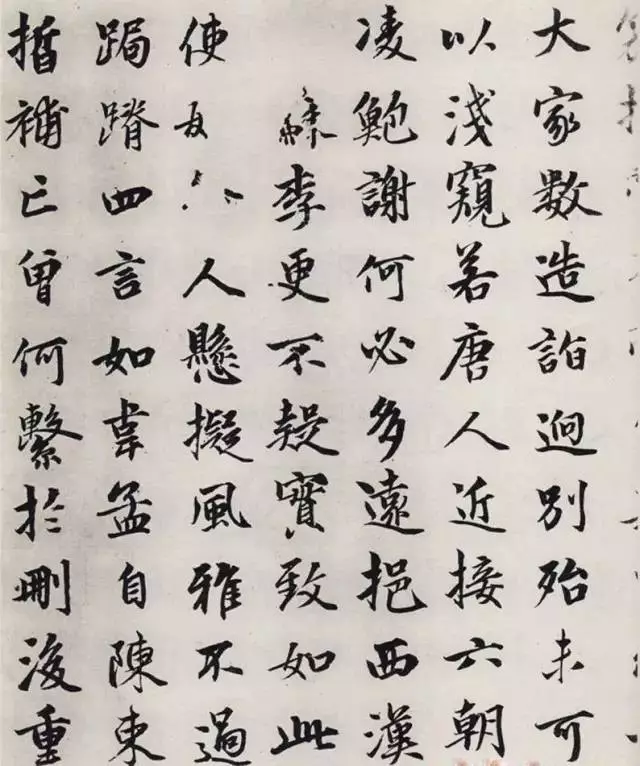 大家數造詣迥別殆未可
以淺窺若唐人近接六朝
凌鮑謝何必多遠挹西漢
蘇李更不致如此
使人懸擬風雅不過
跼蹐四言如韋孟自陳束
皙補亡曾何繫於刪後重